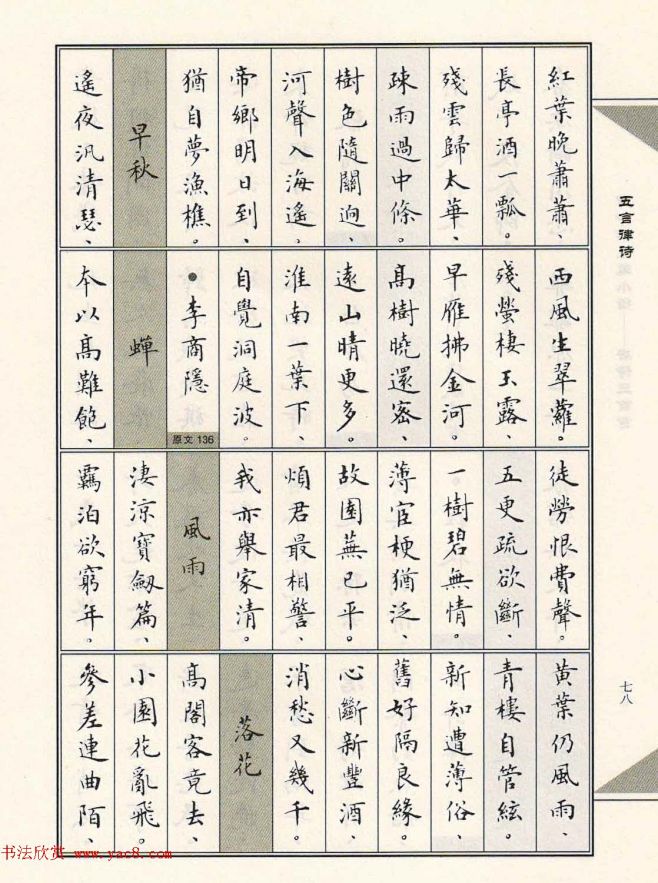 五言律詩
紅葉晚蕭蕭、
長亭酒一瓢。
殘雲歸太華、
疎雨過中條。
樹色隨關迥、
河聲入海遙、
帝鄉明日到、
猶自夢漁樵。
早秋
遙夜汎清瑟、
西風生翠蘿。
殘螢棲玉露、
早雁拂金河。
高樹曉還密、
遠山晴更多。
淮南一葉下、
自覺洞庭波。
●李商隱
原文 136
蟬
本以高難飽、
徒勞恨費聲。
五更疏欲斷、
一樹碧無情。
薄宦梗猶泛、
故園蕪已平。
煩君最相警、
我亦舉家清。
風雨
淒涼寶劍篇、
羈泊欲窮年。
黃葉仍風雨、
青樓自管絃。
新知遭薄俗、
舊好隔良緣。
心斷新豐酒、
消愁又幾千。
落花
高閣客竟去、
小園花亂飛。
參差連曲陌、
七八
书法欣赏 www.yac8.com